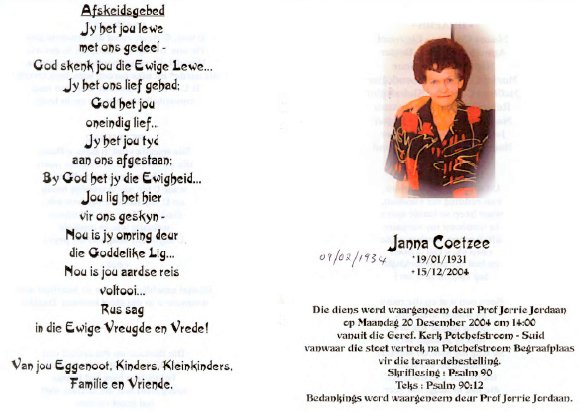 Afskeidsgebed
Jy het jou lewe
met ons gedeel -
God skenk jou die Ewige Lewe...
Jy het ons lief gehad;
God het jou
oneindig lief...
Jy het jou tyd
aan ons afgestaan;
By God het jy die Ewigheid...
Jou lig het hier
vir ons geskyn -
Nou is jy omring deur
die Goddelike Lig...
Nou is jou aardse reis
voltooi...
Rus sag
in die Ewige Vreugde en Vrede!
Van jou Eggenoot, Kinders, Kleinkinders,
Familie en Vriende.
Janna Coetzee
09/02/1934
*19/01/1931
+15/12/2004
Die diens word waargeneem deur Prof Jorrie Jordaan
op Maandag 20 Desember 2004 om 14:00
vanuit die Geref. Kerk Potchefstroom - Suid
vanwaar die stoet vertrek na Potchefstroom; Begraafplaas
vir die teraardebestelling.
Skriflesing : Psalm 90
Teks : Psalm 90:12
Bedankings word waargeneem deur Prof Jorrie Jordaan.